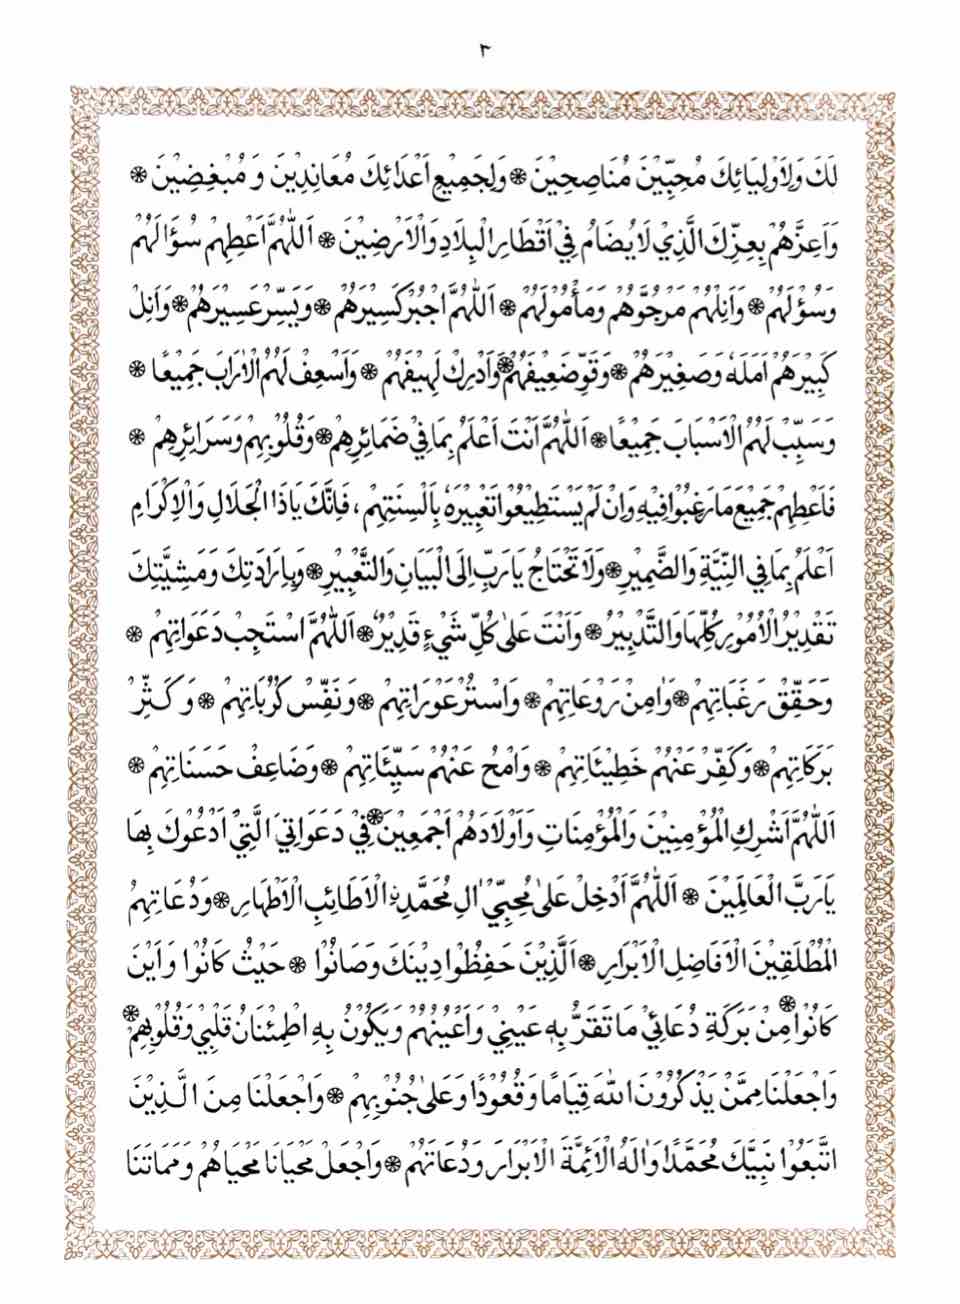 ٣
لَكَ وَلِاَوْلِيَائِكَ مُحِبِّيْنَ مُنَاصِحِيْنَ ۞ وَلِجَمِيْعِ اَعْدَائِكَ مُعَانِدِيْنَ وَ مُبْغِضِيْنَ ۞
وَاَعِزَّهُمْ بِعِزِّكَ الَّذِيْ لَا يُضَامُ فِيْ اَقْطَارِ الْبِلَادِ وَالْاَرْضِيْنَ ۞ اَللّٰهُمَّ اَعْطِهِمْ سُؤَالَهُمْ
وَسُؤْلَهُمْ ۞ وَاَنِلْهُمْ مَرْجُوَّهُمْ وَمَأْمُوْلَهُمْ ۞ اَللّٰهُمَّ اجْبُرْ كَسِيْرَهُمْ ۞ وَيَسِّرْ عَسِيْرَهُمْ ۞ وَاَنِلْ
كَبِيْرَهُمْ اَمَلَهٗ وَصَغِيْرَهُمْ ۞ وَقَوِّ ضَعِيْفَهُمْ ۞ وَاَدْرِكْ لَهِيْفَهُمْ ۞ وَاَسْعِفْ لَهُمُ الْاٰرَابَ جَمِيْعًا ۞
وَسَبِّبْ لَهُمُ الْاَسْبَابَ جَمِيْعًا ۞ اَللّٰهُمَّ اَنْتَ اَعْلَمُ بِمَا فِيْ ضَمَائِرِهِمْ ۞ وَقُلُوْبِهِمْ وَسَرَائِرِهِمْ ۞
فَاَعْطِهِمْ جَمِيْعَ مَا رَغِبُوْا فِيْهِ وَاِنْ لَمْ يَسْتَطِيْعُوْا تَعْبِيْرَهٗ بِاَلْسِنَتِهِمْ ، فَاِنَّكَ يَا ذَا الْجَلَالِ وَالْاِكْرَامِ
اَعْلَمُ بِمَا فِي النِّيَّةِ وَالضَّمِيْرِ ۞ وَلَا تَحْتَاجُ يَا رَبِّ اِلَى الْبَيَانِ وَالتَّعْبِيْرِ ۞ وَبِاِرَادَتِكَ وَمَشِيَّتِكَ
تَقْدِيْرُ الْاُمُوْرِ كُلِّهَا وَالتَّدْبِيْرُ ۞ وَاَنْتَ عَلٰى كُلِّ شَيْءٍ قَدِيْرٌ ۞ اَللّٰهُمَّ اسْتَجِبْ دَعَوَاتِهِمْ ۞
وَحَقِّقْ رَغَبَاتِهِمْ ۞ وَاٰمِنْ رَوْعَاتِهِمْ ۞ وَاسْتُرْ عَوْرَاتِهِمْ ۞ وَنَفِّسْ كُرُبَاتِهِمْ ۞ وَكَثِّرْ
بَرَكَاتِهِمْ ۞ وَكَفِّرْ عَنْهُمْ خَطِيْئَاتِهِمْ ۞ وَامْحُ عَنْهُمْ سَيِّئَاتِهِمْ ۞ وَضَاعِفْ حَسَنَاتِهِمْ ۞
اَللّٰهُمَّ اَشْرِكِ الْمُؤْمِنِيْنَ وَالْمُؤْمِنَاتِ وَاَوْلَادَهُمْ اَجْمَعِيْنَ ۞ فِيْ دَعَوَاتِيَ الَّتِيْ اَدْعُوْكَ بِهَا
يَا رَبَّ الْعَالَمِيْنَ ۞ اَللّٰهُمَّ اَدْخِلْ عَلٰى مُحِبِّيْ اٰلِ مُحَمَّدِنِ الْاَطَائِبِ الْاَطْهَارِ ۞ وَدُعَاتِهِمُ
الْمُطْلَقِيْنَ الْاَفَاضِلِ الْاَبْرَارِ ۞ اَلَّذِيْنَ حَفِظُوْا دِيْنَكَ وَصَانُوْا ۞ حَيْثُ كَانُوْا وَاَيْنَ
كَانُوْا ۞ مِنْ بَرَكَةِ دُعَائِيْ مَا تَقَرُّ بِهٖ عَيْنِيْ وَاَعْيُنُهُمْ وَيَكُوْنُ بِهِ اطْمِئْنَانُ قَلْبِيْ وَقُلُوْبِهِمْ ۞
وَاجْعَلْنَا مِمَّنْ يَذْكُرُوْنَ اللّٰهَ قِيَامًا وَقُعُوْدًا وَعَلٰى جُنُوْبِهِمْ ۞ وَاجْعَلْنَا مِنَ الَّذِيْنَ
اتَّبَعُوْا نَبِيَّكَ مُحَمَّدًا وَاٰلَهُ الْاَئِمَّةَ الْاَبْرَارَ وَدُعَاتَهُمْ ۞ وَاجْعَلْ مَحْيَانَا مَحْيَاهُمْ وَمَمَاتَنَا